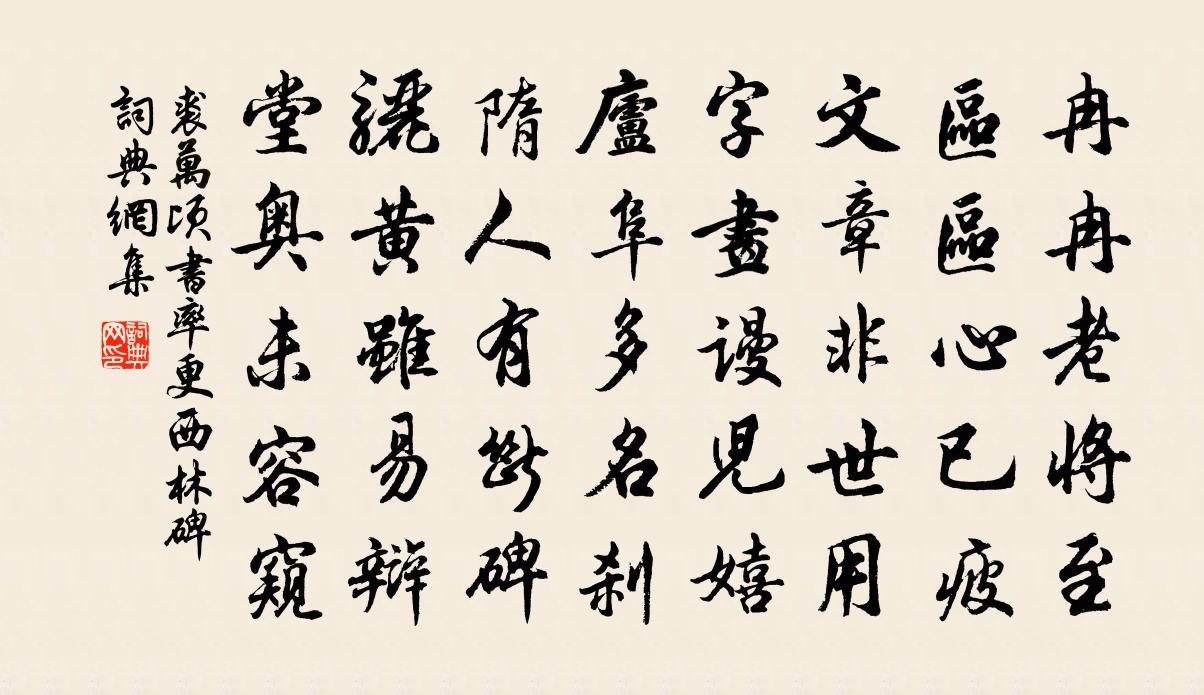 冉冉老將至
區區心已疲
文章非世用
字畫謾兒嬉
廬阜多名刹
隋人有斷碑
驪黃雖易辯
堂奧未容窺
裘萬頃書率更西林碑
詞典網集
詞典网印